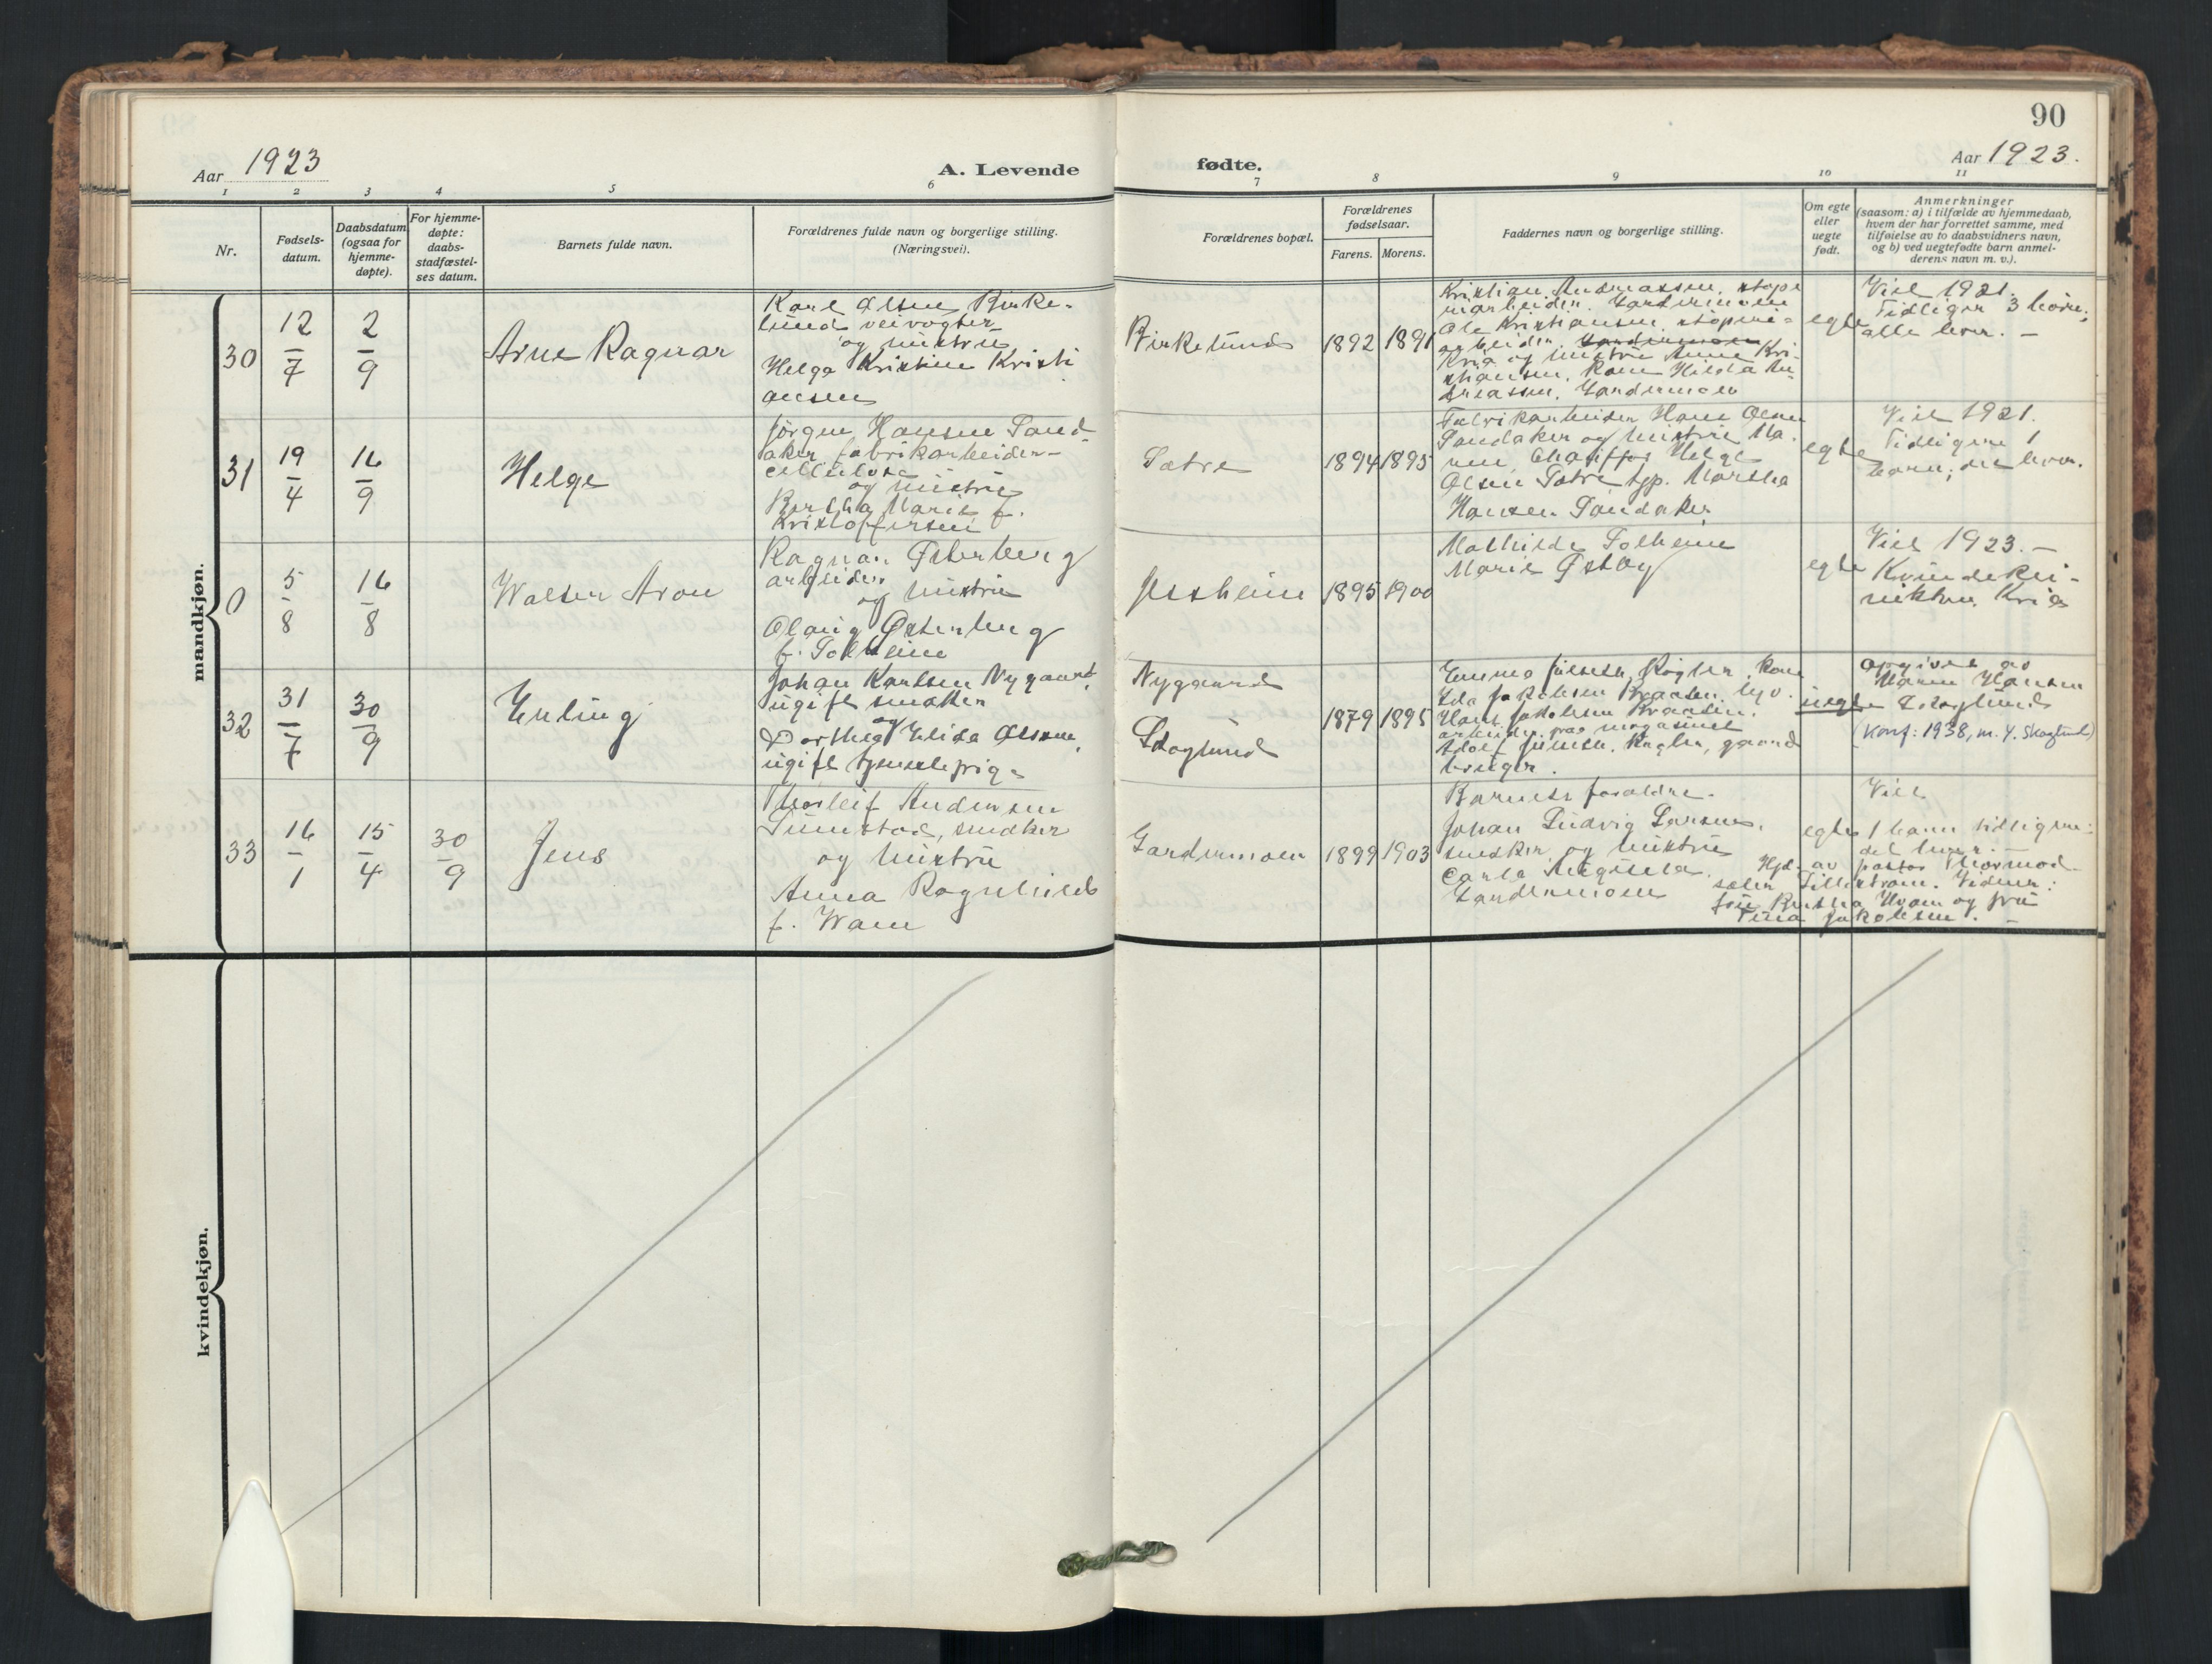 90
Aar 1923
A. Levende
fødte.
Aar 1923.
1 2 3 4 5 6 7 8 9 10 11
Nr.
Fødsels-
datum.
Daabsdatum
(ogsaa for
hjemme-
døpte).
For hjemme-
døpte:
daabs-
stadfæstel-
ses datum.
Barnets fulde navn.
Forældrenes fulde navn og borgerlige stilling.
(Næringsvei).
Forældrenes bopæl.
Forældrenes
fødselsaar.
Farens. Morens.
Faddernes navn og borgerlige stilling.
Om egte
eller
uegte
født.
Anmerkninger
(saasom: a) i tilfælde av hjemmedaab,
hvem der har forrettet samme, med
tilføielse av to daabsvidners navn,
og b) ved uegtefødte barn anmel-
derens navn m. v.).
mandkjøn.
30
12/7
2/9
Arne Ragnar
Karl Olsen Birke-
lund veivogter
og hustru
Helga Kristine Kristi
ansen
Birkelund
1892 1891
Kristian Andreassen, støpe
riarbeider, Gardermoen
Ole Kristiansen, støperi-
arbeider, Gardermoen
Kria og hustru Anne Kri-
stiansen. Kone Hilda An-
dreassen, Gardermoen
egte
Viet 1921.
Tidligere 3 barn;
alle lever. –
31
19/4
16/9
Helge
Jörgen Hansen Sand-
aker fabrikarbeider-
cellulose
og hustru
Bertha Marie f.
Kristoffersen
Sætre
1894 1895
Fabrikarbeider Hans Olsen
Sandaker og hustru Ma-
ren, Chauffør Helge
Olsen Sætre, tjp. Martha
Hansen Sandaker
egte
Viet 1921.
Tidligere 1
barn; det lever.
0
5/8
16/8
Walter Aron
Ragnar Østerberg
arbeider
og hustru
Olaug Østerberg
f. Solheim
Jessheim
1895 1900
Mathilde Solheim
Marie Østby
egte
Viet 1923. –
Kvindekli-
nikken Kria
32
31/7
30/9
Erling
Johan Karlsen Nygaard,
ugift snekker
og
Dorthea Elida Olsen,
ugift tjenestepige
Nygaard
Skoglund
1879 1895
Emma Julsen, Rögler, Kone
Ida Jakobsen Braaten, tyv.
Hans Jakobsen Braaten,
arbeider paa magasinet
Adolf Julsen, Rögler, gaard
bruger.
uegte
Opgivet av
Maren Hansen
Skoglund
(Konf: 1938, m. Y. Skoglund)
33
16/1
15/4
30/9
Jens
Thorleif Andersen
Sunstad, snedker
og hustru
Anna Ragnhild
f. Wam
Gardermoen
1899 1903
Barnets foreldre.
Johan Ludvig Larsen,
snedker og hustru
Carla Augusta
Gardermoen
egte
Viet
1 barn tidligere:
det lever. –
Hjd. av pastor Thormod-
sæter Lillestrøm. Vidner:
fru Bertha Hvam og fru
Tina Jakobsen. –
kvindekjøn.